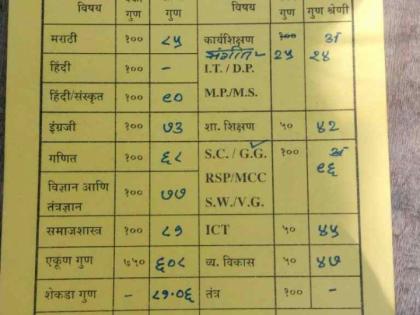 विषय गुण गुण विषय गुण गुण श्रेणी
मराठी १०० ८५ कार्यशिक्षण १०० अ
संगीत - २५ २४
हिंदी १०० - I.T. / D.P.
हिंदी/संस्कृत १०० ९० M.P./M.S.
इंग्रजी १०० ७३ शा. शिक्षण ५० ४२
गणित १०० ६८ S.C. / G.G. १०० अ
विज्ञान आणि १०० ७७ RSP/MCC ९६
तंत्रज्ञान S.W./V.G.
समाजशास्त्र १०० ८१ ICT ५० ४५
एकूण गुण ७५० ६०८ व्य. विकास ५० ४७
शेकडा गुण - ८१.०६ तंत्र १०० -